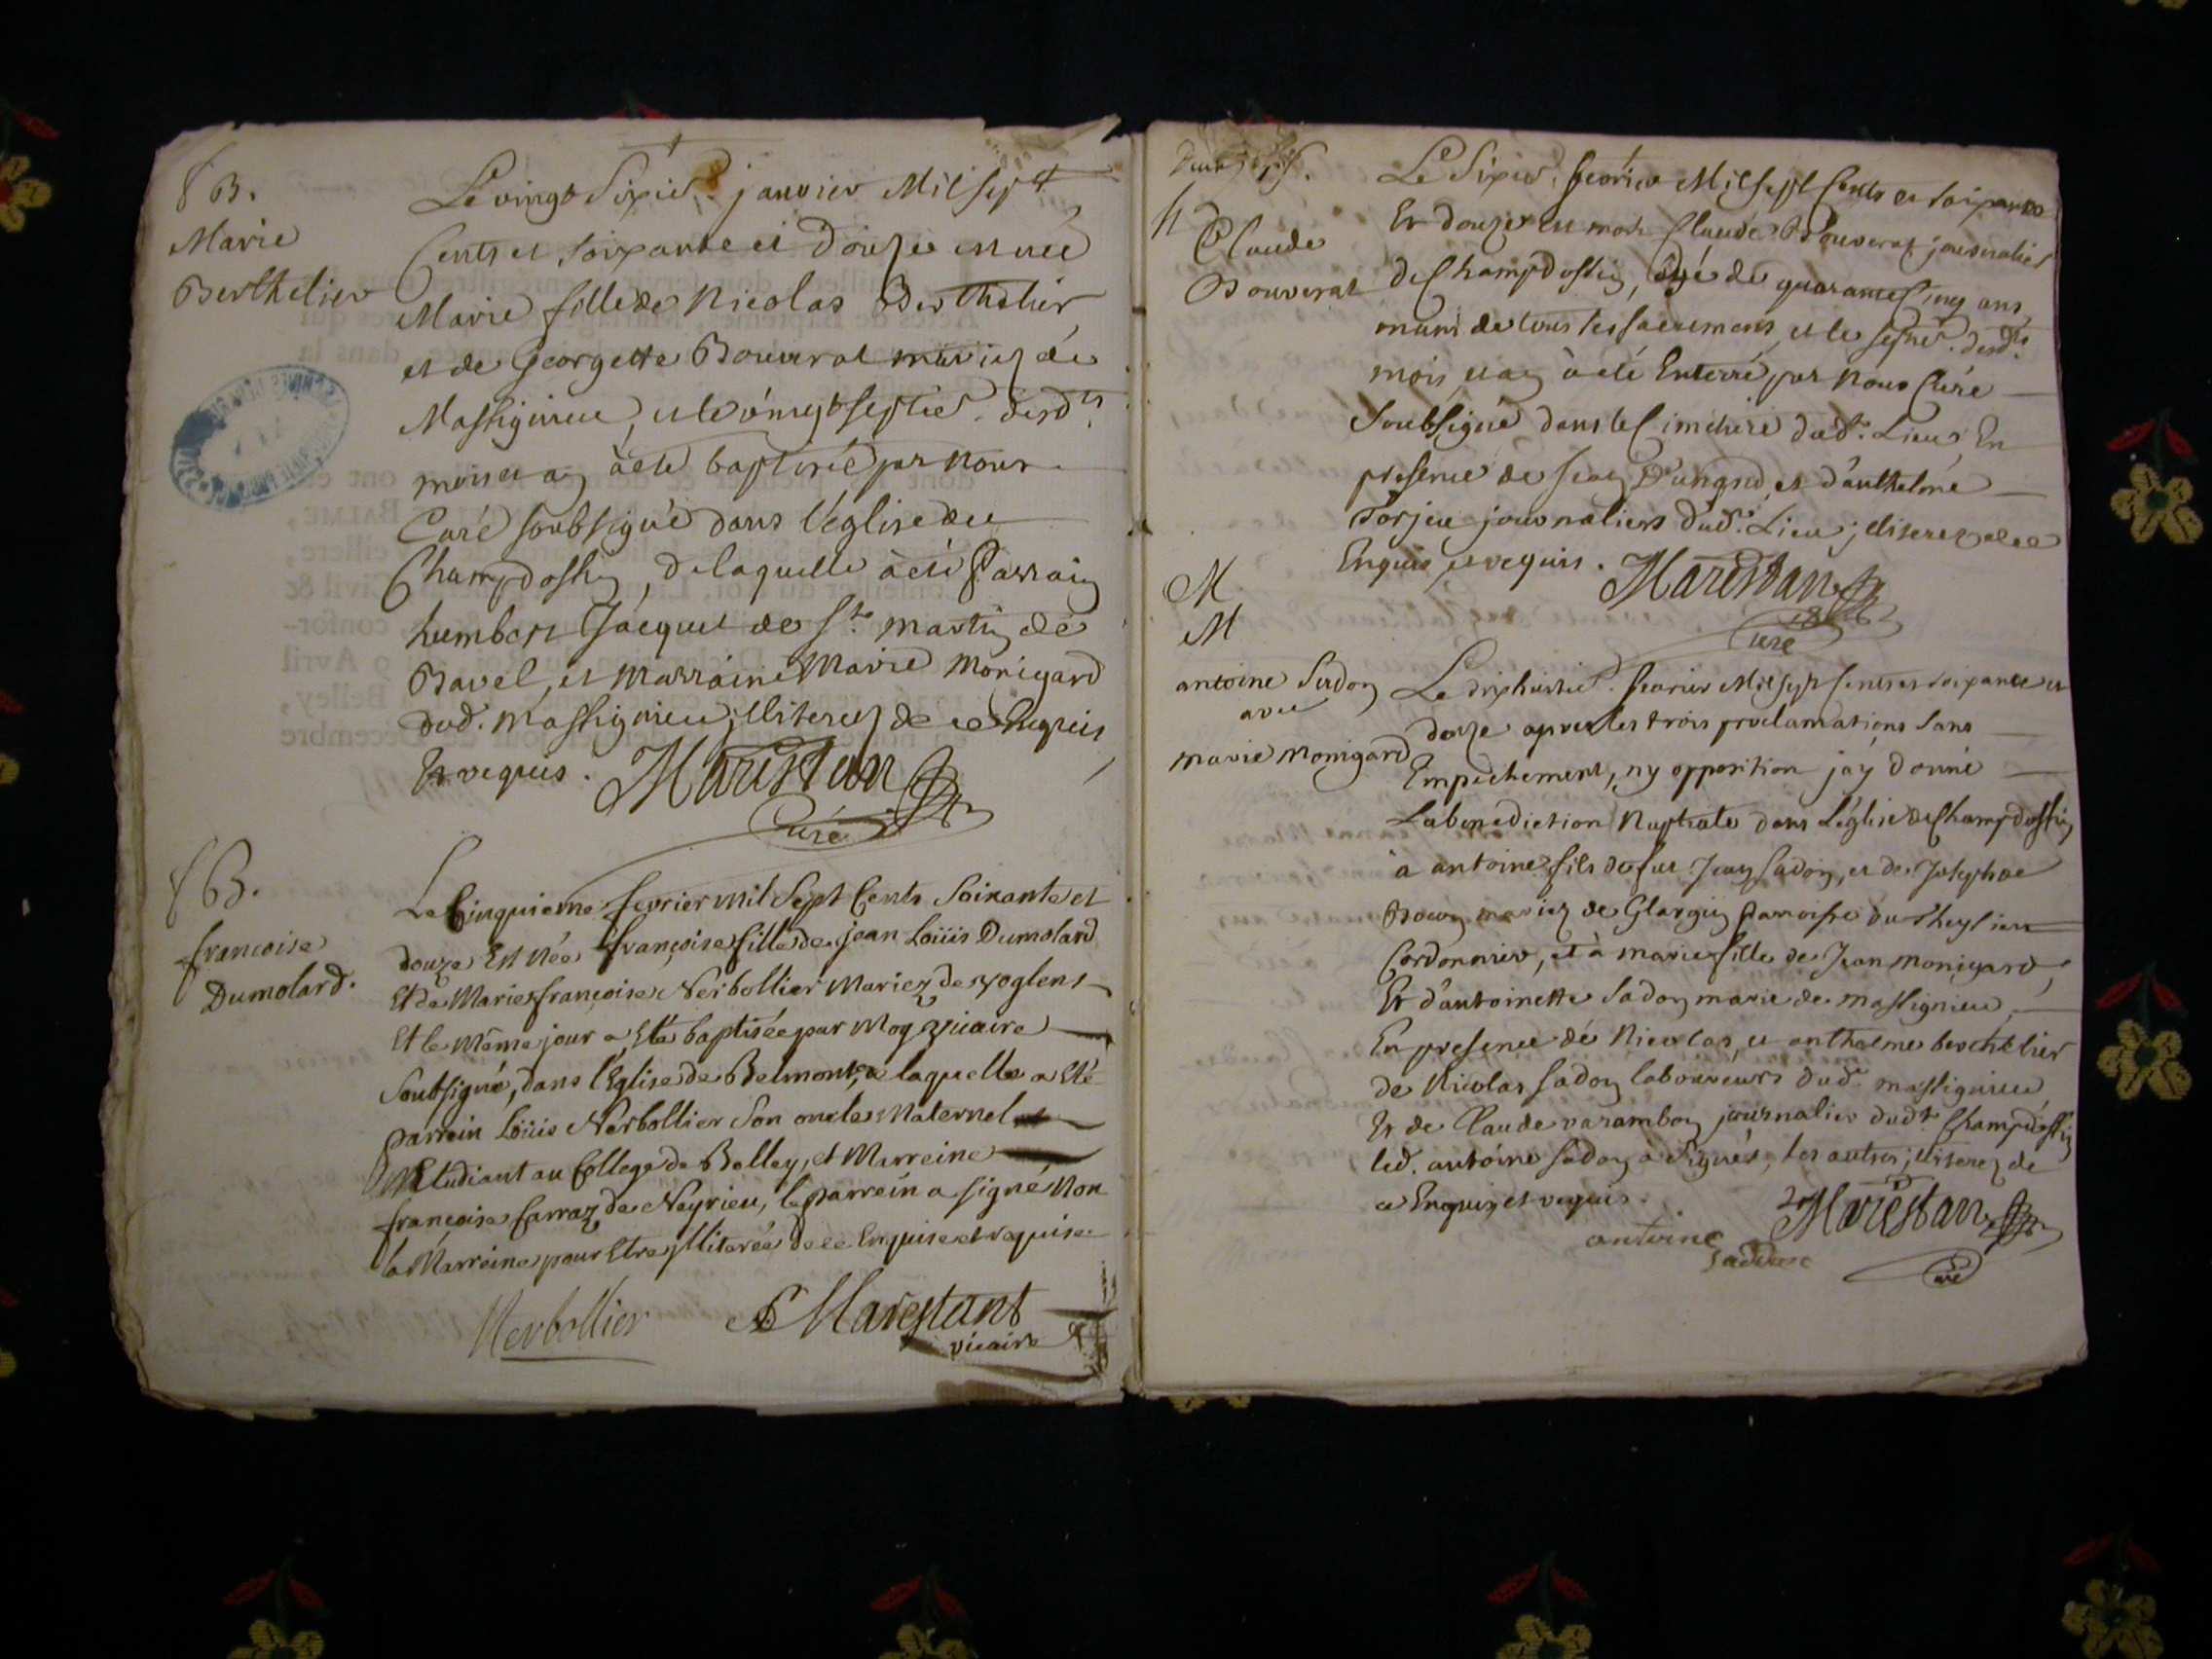 B.
Marie
Berthelier
Le vingt Sixie. janvier Mil sept
Cents et soixante et douze est née
Marie fille de Nicolas Berthelier
et de Georgette Bouverat mariez de
Massignieu, et le vingt septie. desd.ts
mois et an à été baptisée par nous
Curé soubsigné dans l'église de
Champdossin, de laquelle à été Parrain
humbert Jacquet de St. martin de
Bavel, et marraine Marie Monigard
dud. Massignieu, illiterez de ce Enquis
Et requis. Marestan
Curé
B.
francoise
Dumolard.
Le Cinquieme fevrier mil Sept Cents Soixante et
douze Est Née françoise fille de jean Loüis Dumolard
Et de Marie françoise Nerbollier Mariez de yoglens
Et le même jour a Eté baptisée par Moy vicaire
Soubsigné, dans l'Eglise de Belmont, a laquelle a Eté
parrein Loüis Nerbollier Son oncle Maternel
Etudiant au College de Belley, et Marreine
françoise Carraz de Neyrieu, le parrein a signé, Non
la Marreine pour Etre illiterée de ce Enquise et requise
Nerbollier Marestant
vicaire
h
Claude
Bouverat
Le Sixie. fevrier Mil sept Cents et soixante
Et douze est mort Claude Bouverat journalier
de Champdossin, âgé de quarante Cinq ans,
muni de tous les sacremens, et le septie. desd.ts
mois et an à été Enterré par nous Curé
Soubsigné dans le Cimetiere dud. Lieu, En
presence de Jean Dungnd et d'anthelme
Torjeu journaliers dud. Lieu, illiterez de ce
Enquis, et requis. Marestan
Curé
M
M
antoine Sadon
avec
marie Monigard
Le dixhuitie. fevrier Mil sept cents et soixante et
douze apres les trois proclamations sans
Empechement, ny opposition jay donné
La benediction Nuptiale dans L'église de Champdossin
à antoine fils de feu Jean Sadon, et de Josephte
mariez de Glargin Paroisse du Cheylieu
Cordonnier, et à marie fille de Jean Monigard,
Et d'antoinette Sadon marié de massignieu,
En presence de Nicolas, et anthelme berthelier
de Nicolas Sadon laboureurs dud. massignieu
Et de Claude varambon journalier dudt Champdossin
led. antoine Sadon a Signé, les autres illiterez de
ce Enquis, et requis.
Marestan
antoine
Sadon
Curé